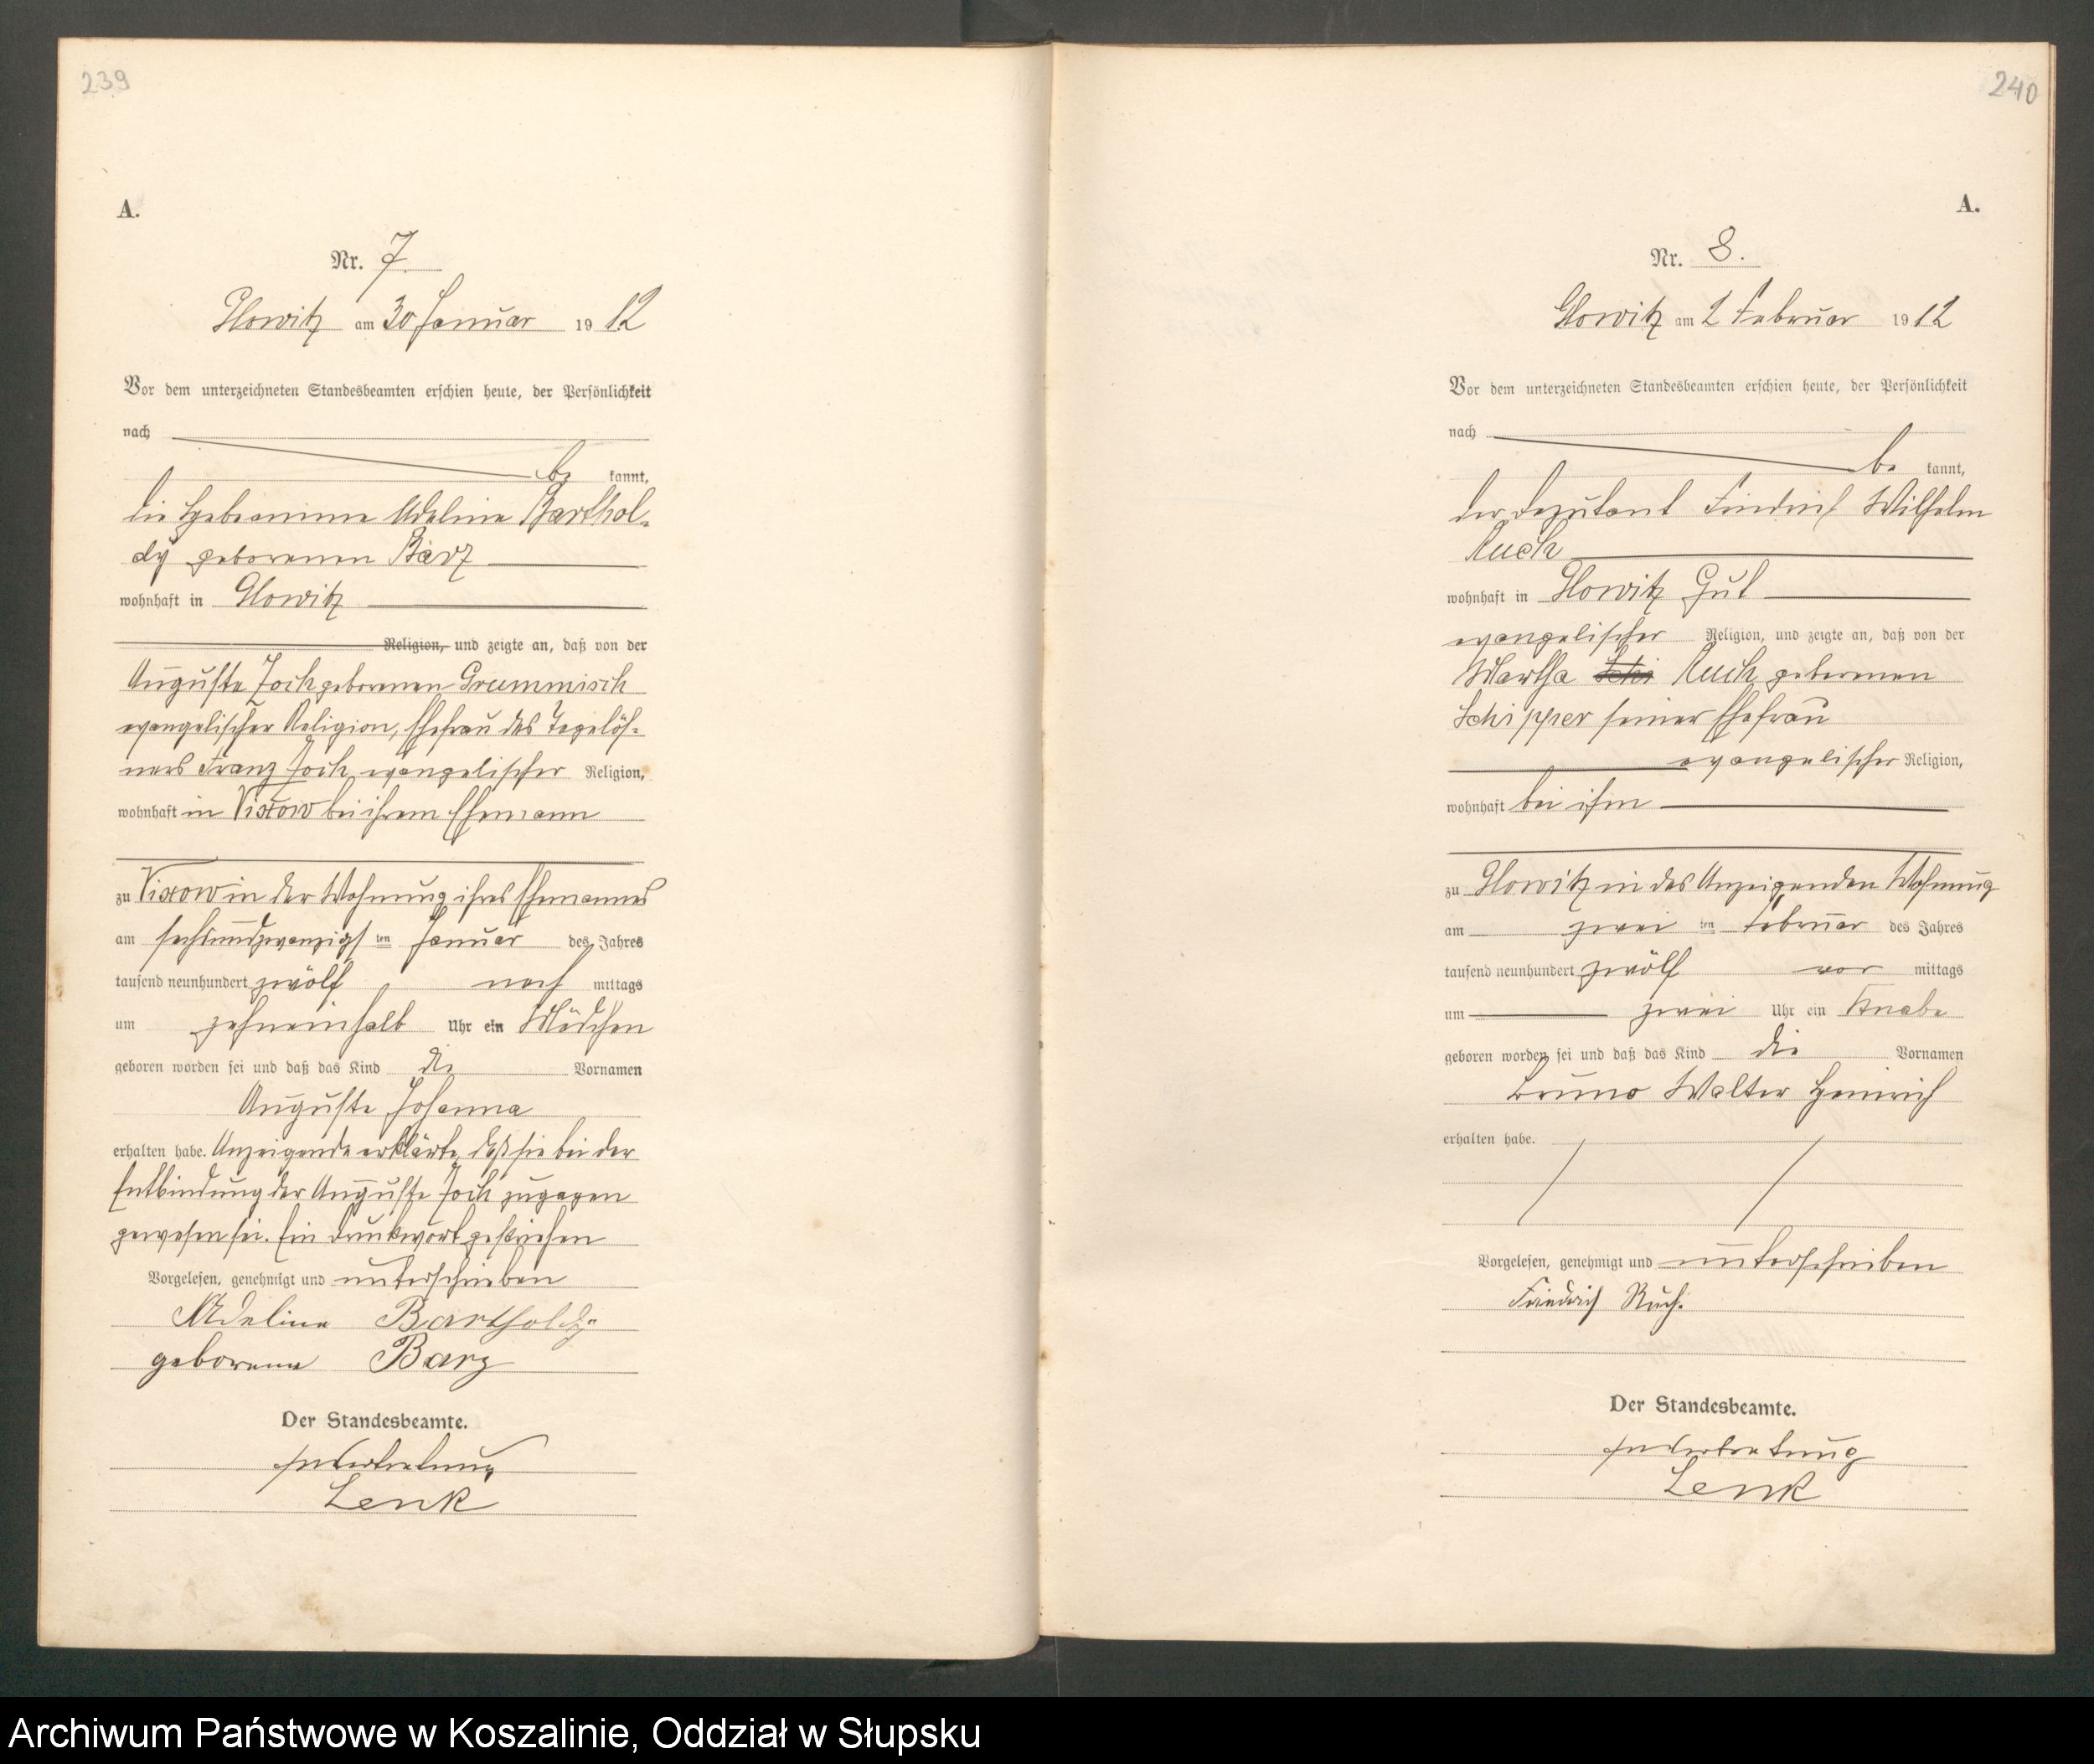 239
A.
Nr. 7.
Glowitz am 30 Januar 1912
Vor dem unterzeichneten Standesbeamten erschien heute, der Persönlichkeit
nach
be kannt,
die Hebeamme Adeline Barthol-
dy geborenen Barz
wohnhaft in Glowitz
Religion, und zeigte an, daß von der
Auguste Joch geborenen Grummisch
evangelischer Religion, Ehefrau des Tagelöh-
ners Franz Joch, evangelischer Religion,
wohnhaft in Vixow bei ihrem Ehemann
zu Vixow in der Wohnung ihres Ehemannes
am sechsundzwanzigs ten Januar des Jahres
tausend neunhundert zwölf nach mittags
um zehneinhalb Uhr ein Mädchen
geboren worden sei und daß das Kind die Vornamen
Auguste Johanna
erhalten habe. Anzeigende erklärte, daß sie bei der
Entbindung der Auguste Joch zugegen
gewesen sei. Ein Druckwort gestrichen
Vorgelesen, genehmigt und unterschrieben
Adeline Bartholdy
geborene Barz
Der Standesbeamte.
In Vertretung
Lenk
240
A.
Nr. 8.
Glowitz am 2 Februar 1912
Vor dem unterzeichneten Standesbeamten erschien heute, der Persönlichkeit
nach
be kannt,
der Deputant Friedrich Wilhelm
Ruch
wohnhaft in Glowitz Gut
evangelischer Religion, und zeigte an, daß von der
Martha Schi Ruch geborenen
Schipper seiner Ehefrau
evangelischer Religion,
wohnhaft bei ihm
zu Glowitz in des Anzeigenden Wohnung
am zwei ten Februar des Jahres
tausend neunhundert zwölf vor mittags
um zwei Uhr ein Knabe
geboren worden sei und daß das Kind die Vornamen
Bruno Walter Heinrich
erhalten habe.
Vorgelesen, genehmigt und unterschrieben
Friedrich Ruch.
Der Standesbeamte.
In Vertretung
Lenk
Archiwum Państwowe w Koszalinie, Oddział w Słupsku